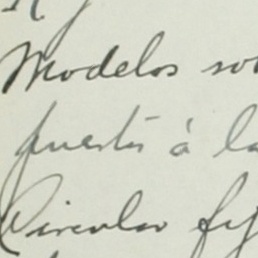 Modelos so
puestos á la
Circular fy